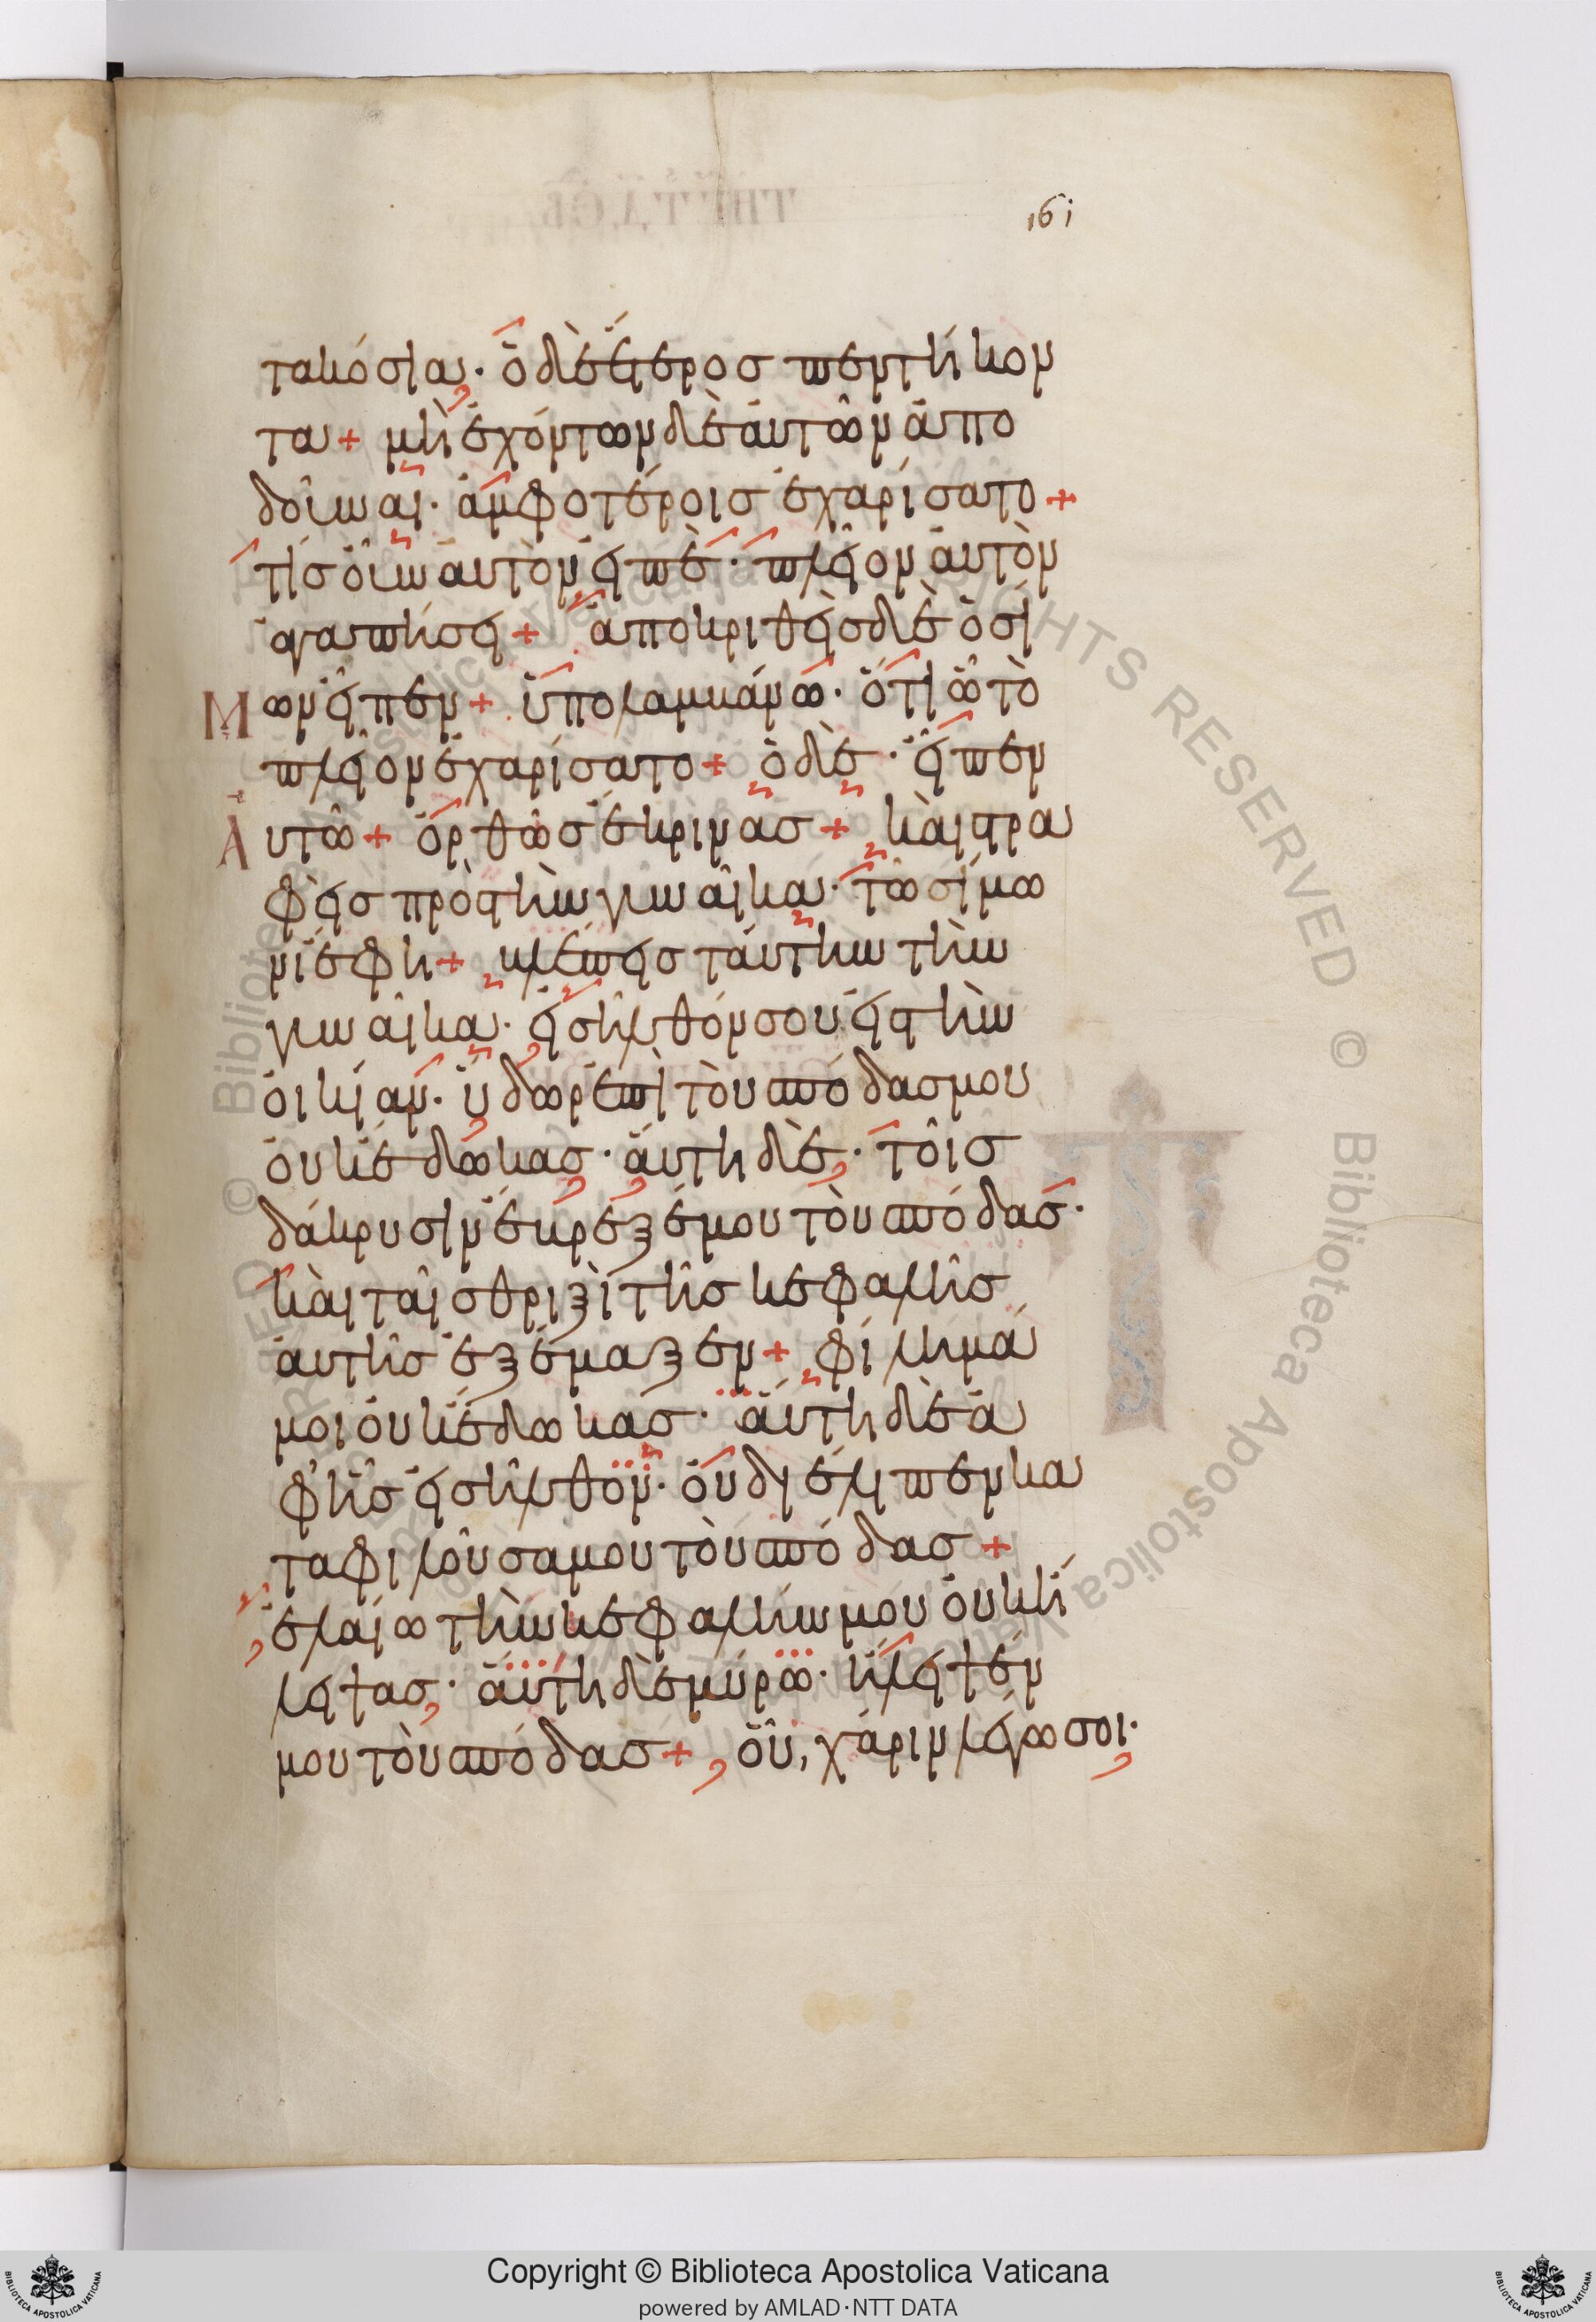 161
τακόσια· ὁ δὲ ἕτερος πεντήκον
τα + μὴ ἐχόντων δὲ ἀυτῶν ἀπο
δοῦναι· ἀμφοτέροις ἐχαρίσατο +
τίς οὖν ἀυτὸν εἰπὲ· πλεῖον ἀυτὸν
ἀγαπήσει + ἀποκριθεὶς δὲ ὁ σί
Μων εἶπεν + ὑπολαμβάνω· ὅτι ὧ τὸ
πλεῖον ἐχαρίσατο + ὁ δὲ· εἶπεν
Αυτῶ + ὀρθῶς ἔκρινας + καὶ στρα
φεὶς πρὸς τὴν γυναῖκα· τῶ σίμω
νι ἔφη + βλέπεις ταύτην τὴν
γυναῖκα· εἰσῆλθόν σου εἰς τὴν
οἰκίαν· ὕδωρ ἐπὶ τοὺς πόδας μου
οὐκ ἔδωκας· ἅυτη δὲ· τοῖς
δάκρυσιν ἔβρεξέ μου τοὺς πόδας·
καὶ ταῖς θριξὶ τῆς κεφαλῆς
ἀυτῆς ἐξέμαξεν + φίλημά
μοι οὐκ ἔδωκας· ἅυτη δὲ ἀ
φ᾿ ἧς εἰσῆλθον· οὐ διέλιπεν κα
ταφιλοῦσα μου τοὺς πόδας +
ἐλαίω τὴν κεφαλήν μου οὐκ ἤ
λειψας· ἅυτη δὲ μύρω· ἤλειψέν
μου τοὺς πόδας + οὗ, χάριν λέγω σοι·
© Biblioteca Apostolica Vaticana
Copyright © Biblioteca Apostolica Vaticana
powered by AMLAD·NTT DATA